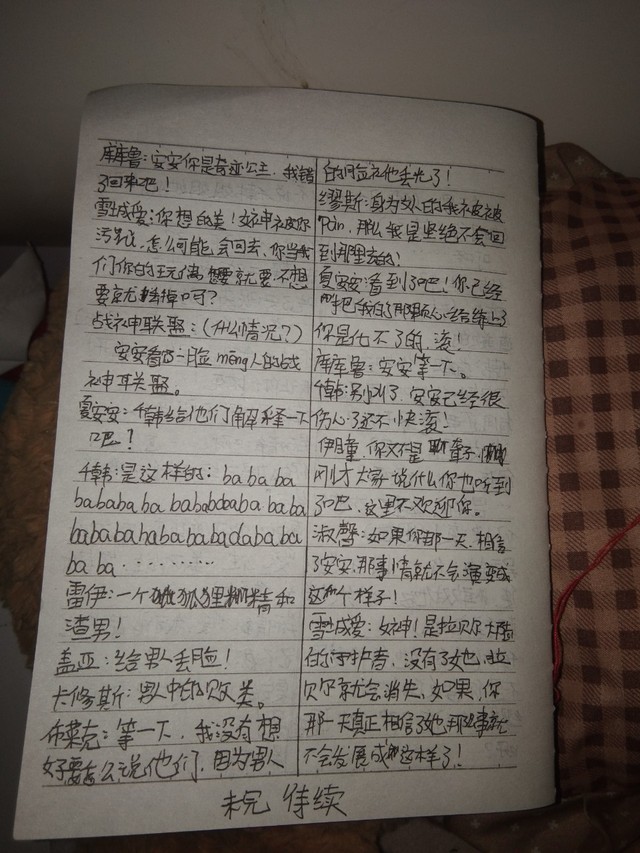 库库鲁：安安你是奇迹公主，我错
了回来吧！
雪成爱：你想的美！女神被你
污蔑，怎么可能会回去，你当我
们你的玩偶，想要就要，不想
要就丢掉吗？
战神联盟：(什么情况？)
安安看了一脸mēng人的战
神联盟。
夏安安：千韩给他们解释一下
吧？
千韩：是这样的：ba ba ba
bababa ba bababdaba ba ba
babababababa badababa
ba ba…………
雷伊：一个狐狸精和
渣男！
盖亚：给男人丢脸！
卡修斯：男人中的败类。
布莱克：等一下，我没有想
好要怎么说他们，因为男人
的脸被他丢光了！
缪斯：身为女人的我被
pàn，那么我是坚绝不会回
到那里去的！
夏安安：看到了吧！你已经
把我的了那颗心给
你是化不了的，滚！
库库鲁：安安等一下。
千韩：别叫了，安安已经很
伤心了还不快滚！
伊瞳：你又不是聋子，
刚才大家说什么你也听到
了吧，这里不欢迎你。
淑馨：如果你那一天，相信
了安安，那事情就不会演变成
这个样子！
雪成爱：女神！是拉贝尔大陆
的守护者，没有了她，拉
贝尔就会消失，如果，你
那一天真正相信了她，那些事就
不会发展成这样了！
未完 待续